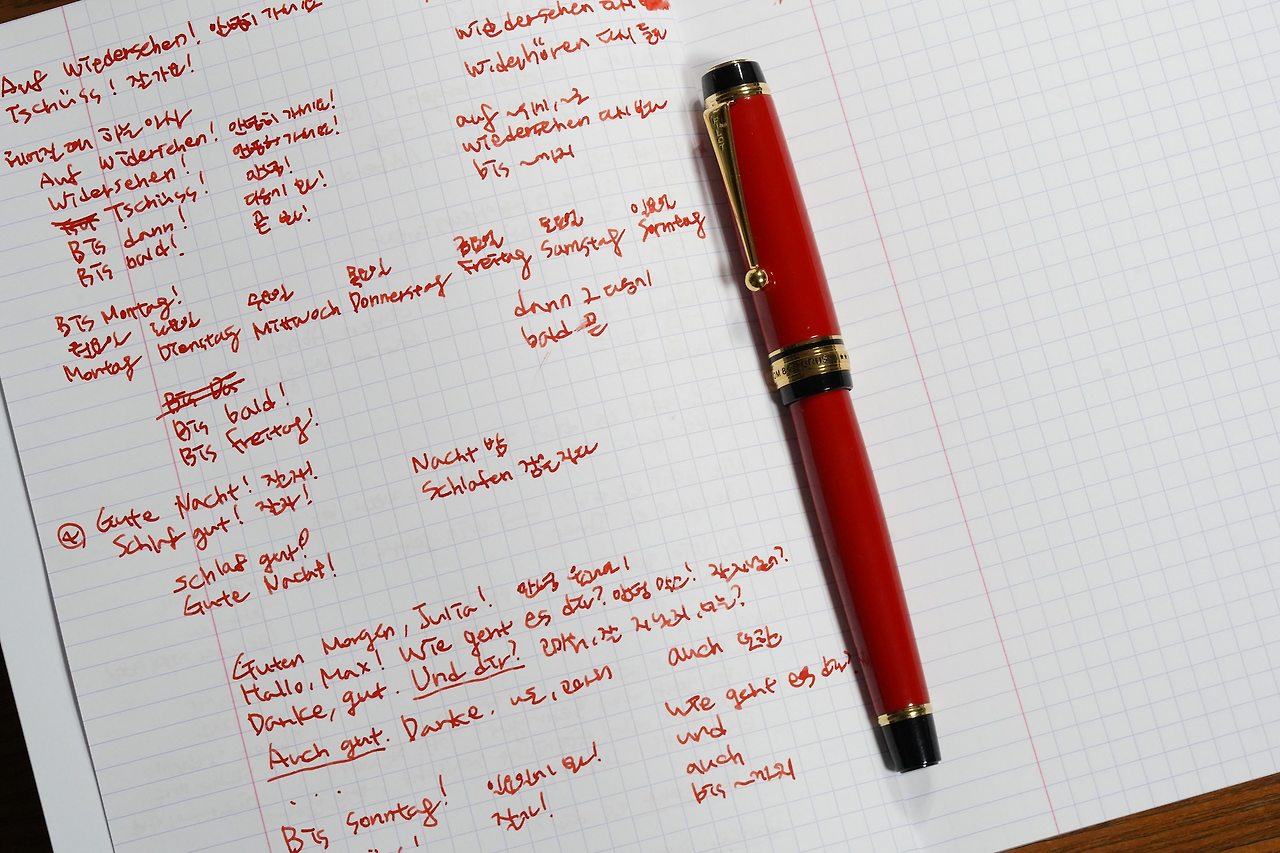 Auf Wiedersehen! 안녕히 가세요
Tschüss! 잘가요!
헤어질 때 하는 인사
Auf Widersehen! 안녕히 가세요!
Widersehen! 안녕히 가세요!
Tschüss! 안녕!
Bis dann! 다음에 봐!
Bis bald! 곧 봐!
wiedersehen 다시
widerhören 다시 듣
auf
wiedersehen 다시 보는
bis ~까지
Bis Montag!
월요일 화요일 수요일 목요일 금요일 토요일 일요일
Montag Dienstag Mittwoch Donnerstag Freitag Samstag Sonntag
dann 그 다음에
bald 곧
Bis
Bis bald!
Bis Freitag!
Nacht 밤
Schlafen 잠을 자다
Gute Nacht! 잘자!
Schlaf gut! 잘자!
schlaf gut!
Gute Nacht!
Guten Morgen, Julia! 안녕
Hallo, Max! Wie geht es dir? 안녕 막스! 잘 지냈어?
Danke, gut. Und dir? 고마워, 잘 지냈지, 너는?
Auch gut. Danke. 나도, 고마워
auch 또한
wie geht es dir?
und
auch
bis ~까지
. . .
Bis Sonntag! 일요일에 봐!
잘가!